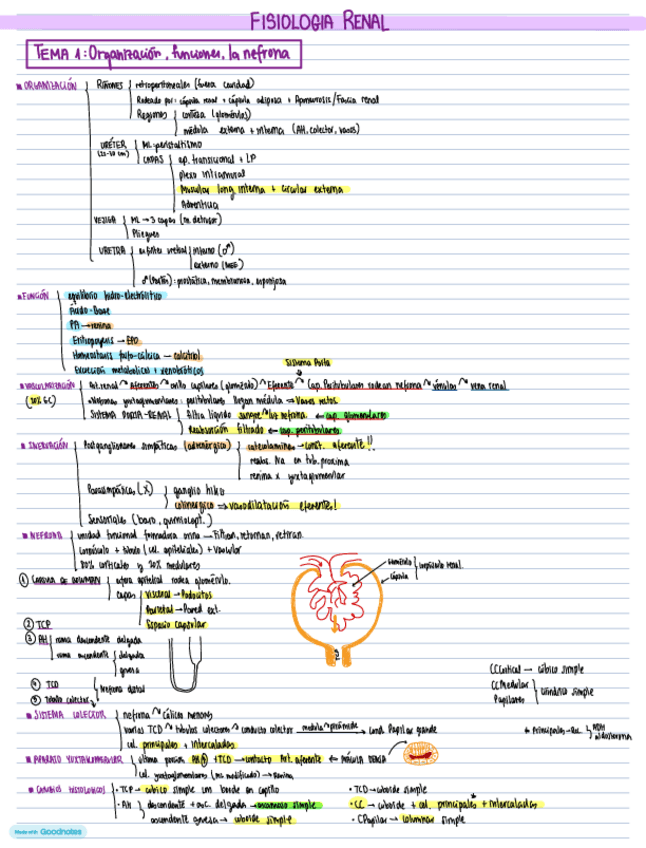 FISIOLOGIA RENAL
TEMA 1: Organización, funciones, la nefrona
ORGANIZACIÓN
RIÑONES
retroperitoneales (fuera cavidad)
Rodeado por: cápsula renal + cápsula adiposa + Aponeurosis/Fascia renal
Regiones
corteza (glomérulos)
médula externa + interna (AH, colector, vasos)
URÉTER
ML: peristaltismo
CAPAS
ep. transicional + LP
plexo intramural
Muscular long interna + circular externa
Adventicia
VEJIGA
ML → 3 capas (m. detrusor)
Pliegues
URETRA
esfínter uretral
interno (♂)
externo
prostática, membranosa, esponjosa
FUNCIÓN
equilibrio hidro-electrolítico
Ácido-Base
PA → renina
Eritropoyesis → EPO
Homeostasis fosfo-cálcica → calcitriol
Excreción metabólicos + xenobióticos
Sistema Porta
VASCULARIZACIÓN
(20% GC)
Art. renal → Aferentes → ovillo capilares (glomérulo) → Eferente → Cap. Peritubulares rodean nefrona → vénulas → vena renal
Nefronas yuxtaglomerulares: peritubulares llegan médula → Vasos rectos
SISTEMA PORTA-RENAL
filtra líquido sangre → luz nefrona ← cap. glomerulares
Reabsorción filtrado ← cap. peritubulares
INERVACIÓN
Postganglionares simpáticas (adrenérgico)
catecolaminas → const. aferente!!
reabs. Na en tub. proxima
renina x yuxtaglomerular
Parasimpáticas (X)
ganglio hilio
colinérgico → vasodilatación eferente!
Sensoriales (baro, quimiorept.)
NEFRONA
unidad funcional formadora orina → Filtran, retornan, retiran
Corpúsculo + túbulo (cel. epiteliales) + vascular
80% corticales y 20% medulares
① CÁPSULA DE BOWMAN
esfera epitelial rodea glomérulo.
capas
Visceral → Podocitos
Parietal → Pared ext.
Espacio capsular
Glomérulo
cápsula
corpúsculo renal
② TCP
③ AH
rama descendente delgada
rama ascendente
delgada
gruesa
④ TCD
⑤ Túbulo colector
Nefrona distal
CCCortical → cúbico simple
CCMedular
Papilares
cilíndrico simple
SISTEMA COLECTOR
nefrona → Cálices menores
varios TCD → túbulos colectores → conducto colector medula → pirámide → Cond. Papilar grande
cel. principales + intercaladas
* Principales → Rc.
ADH
aldosterona
APARATO YUXTAGLOMERULAR
última porción AH + TCD → contacto Art. aferente ← MÁCULA DENSA
cel. yuxtaglomerulares (ML modificado) → Renina
CAMBIOS HISTOLÓGICOS
• TCP → cúbico simple con borde en cepillo
• TCD → cuboide simple
• AH
descendente + asc. delgada → escamoso simple
ascendente gruesa → cuboide simple
• CC → cuboide + cel. principales + intercaladas
• CPapilar → columnar simple
Made with Goodnotes